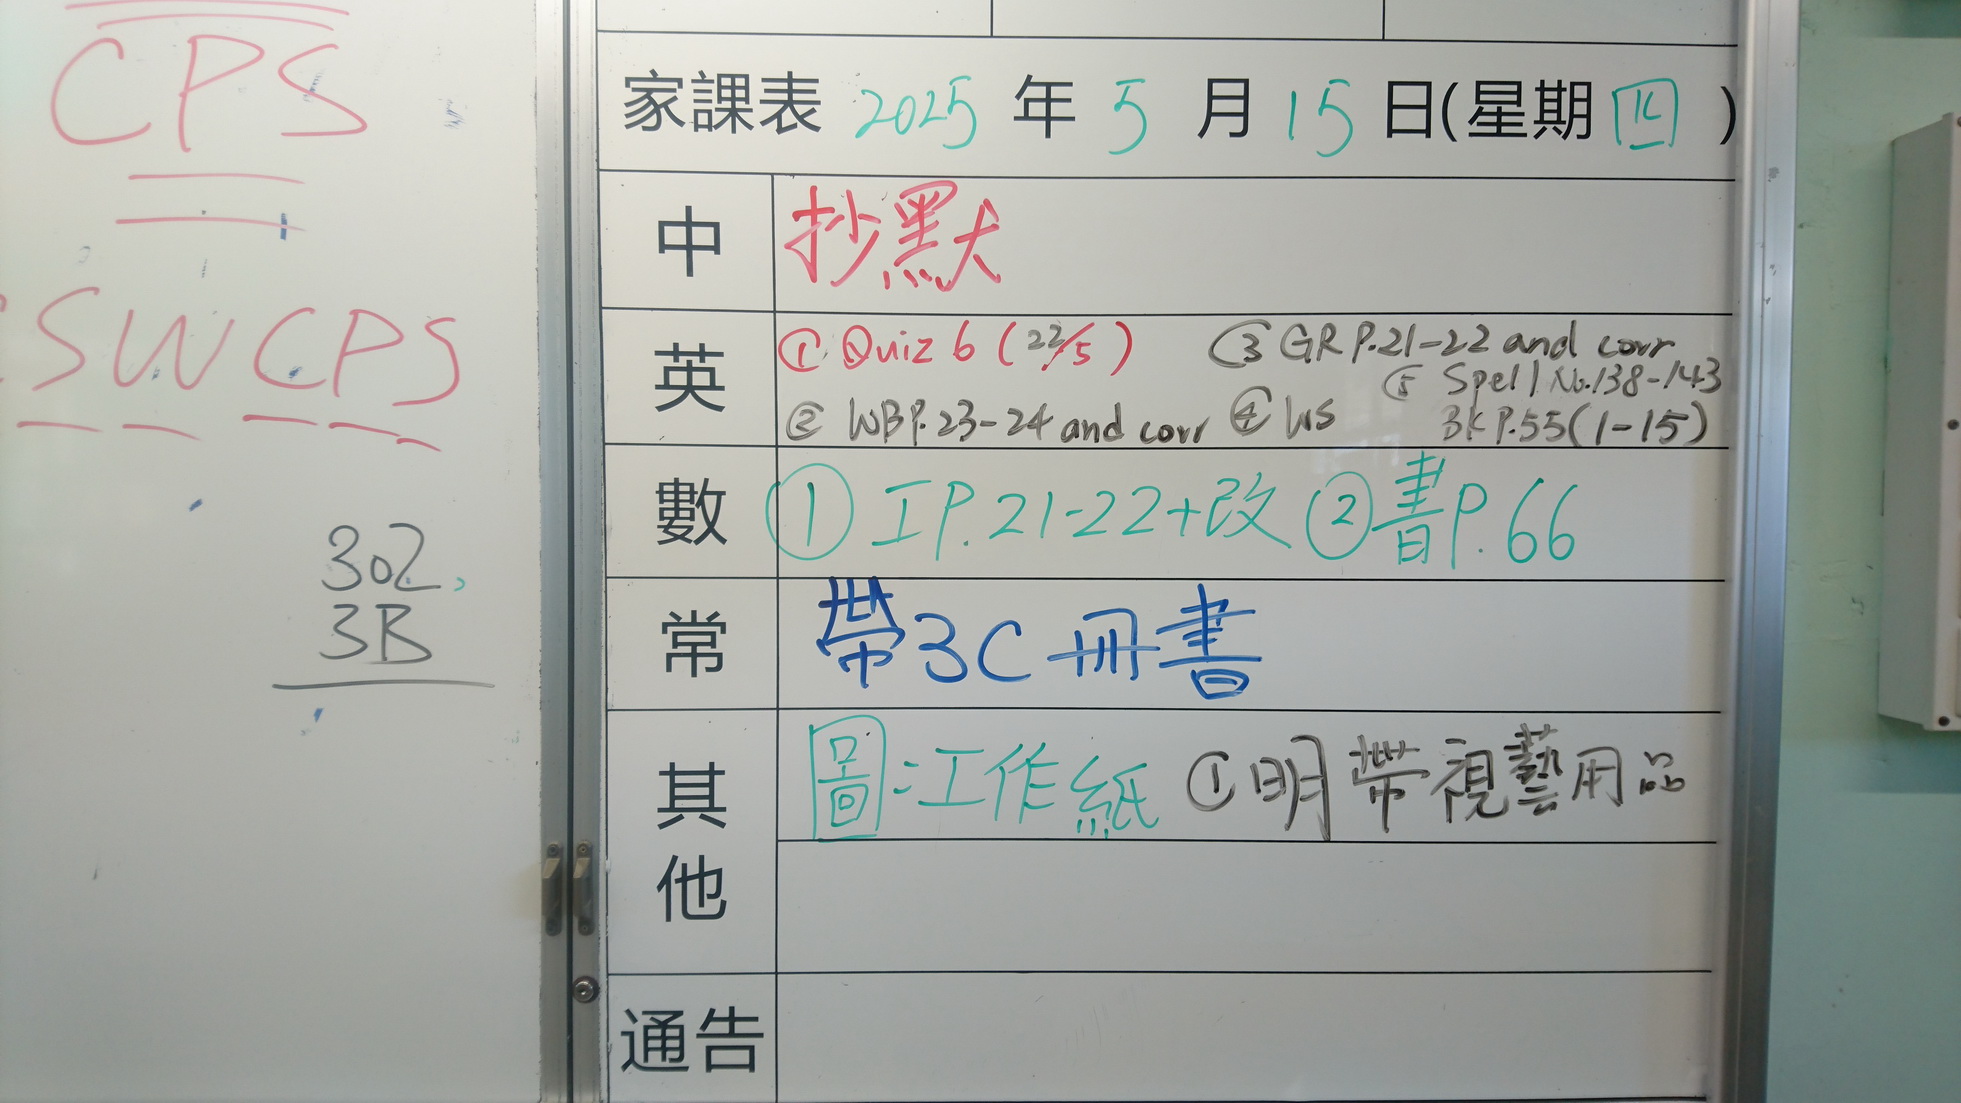 CPS
SWCPS
302,
3B
家課表 2025 年 5 月 15 日(星期 四 )
中 抄默
英 ① Quiz 6 (22/5) ③ GR P.21-22 and corr
⑤ Spell No.138-143
② WB P.23-24 and corr ④ WS BK P.55(1-15)
數 ① 工P.21-22+改 ②書P.66
常 帶3C冊書
其他 圖:工作紙 ①明帶視藝用品
通告